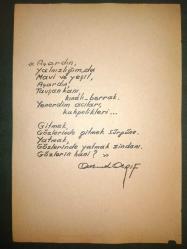 « Açardın,
Yalnızlığımda
Mavi ve yeşil,
Açardın,
Tavşan kanı,
kınalı-berrak.
Yenerdim acıları,
kahpelikleri...
Gitmek,
Gözlerinde gitmek sürgüne.
Yatmak,
Gözlerinde yatmak zindanı.
Gözlerin hani? »